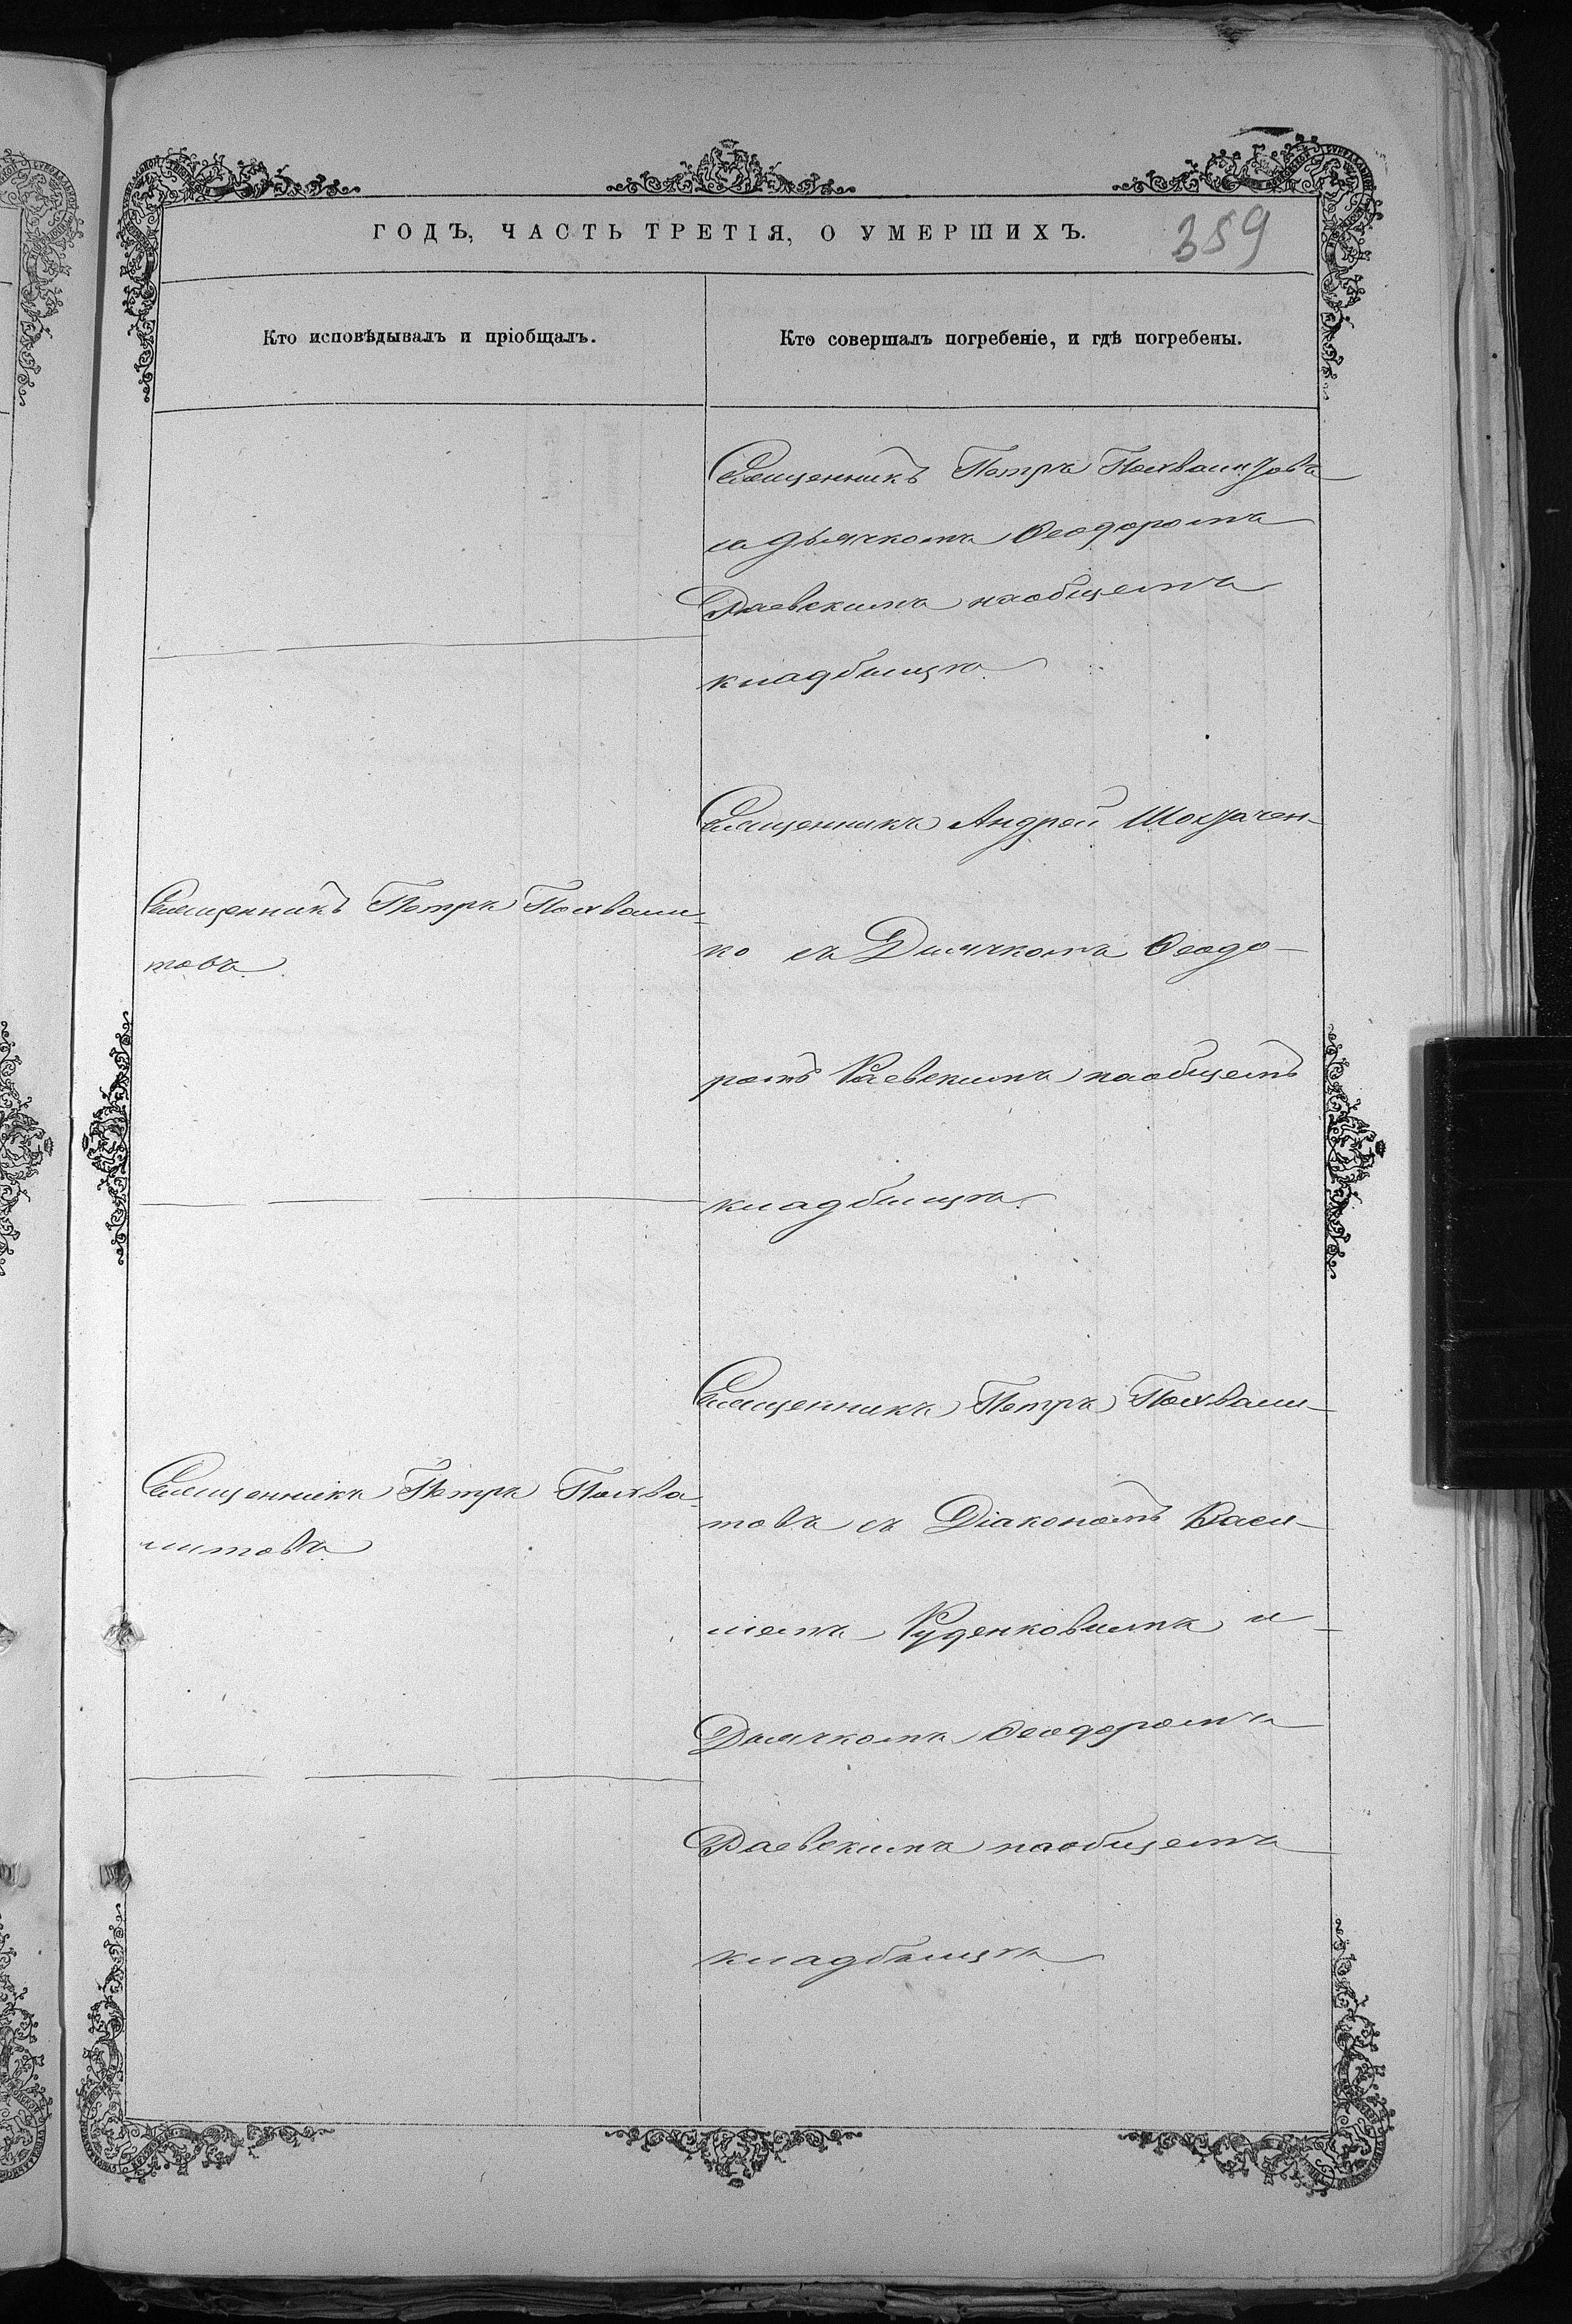 ГОДЪ, ЧАСТЬ ТРЕТІЯ, О УМЕРШИХЪ.
359
Кто исповѣдывалъ и пріобщалъ.
Кто совершалъ погребеніе, и гдѣ погребены.
Священникъ Петръ Похвалитовъ
съ Дьячкомъ Ѳеодоромъ
Раевскимъ наобщемъ
кладбищѣ.
Священникъ Петръ Похвали-
товъ.
Священникъ Андрей
ко съ Дьячкомъ Ѳеодо-
ромъ Раевскимъ наобщемъ
кладбищѣ.
Священникъ Петръ Похва-
литовъ.
Священникъ Петръ Похвали-
товъ съ Діакономъ Васи-
ліемъ Руденковымъ и
Дьячкомъ Ѳеодоромъ
Раевскимъ наобщемъ
кладбищѣ.